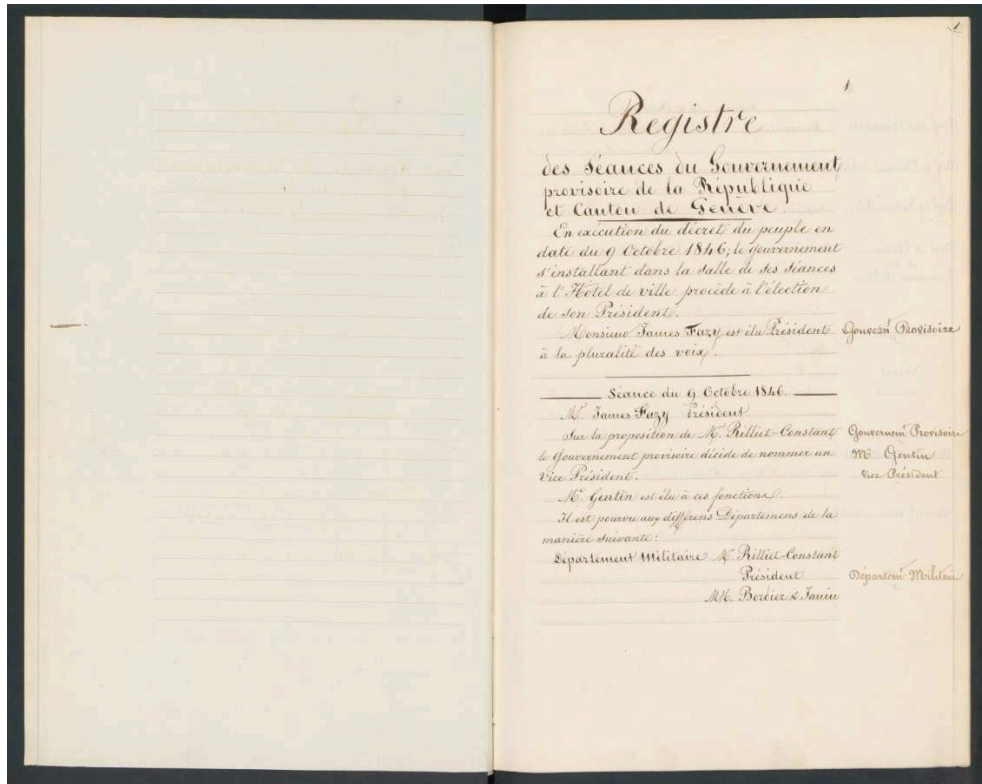 1
1
Registre
des Séances du Gouvernement
provisoire de la République
et Canton de Genève.
En exécution du décret du peuple en
date du 9 Octobre 1846; le gouvernement
s'installant dans la salle de ses séances
à l'Hotel de ville procède à l'élection
de son Président.
Monsieur James Fazy est élu Président
à la pluralité des voix.
Gouvernt Provisoire
Séance du 9 Octobre 1846.
Mr. James Fazy Président
Sur la proposition de Mr. Rilliet-Constant
le Gouvernement provisoire décide de nommer un
Vice Président.
Gouvernemt Provisoire
Mr Gentin
Vice Président
Mr. Gentin est élu à ces fonctions.
Il est pourvu aux différens Départemens de la
manière suivante:
Département Militaire Mr. Rilliet-Constant
Président
MM. Bordier & Janin
Départemt Militaire